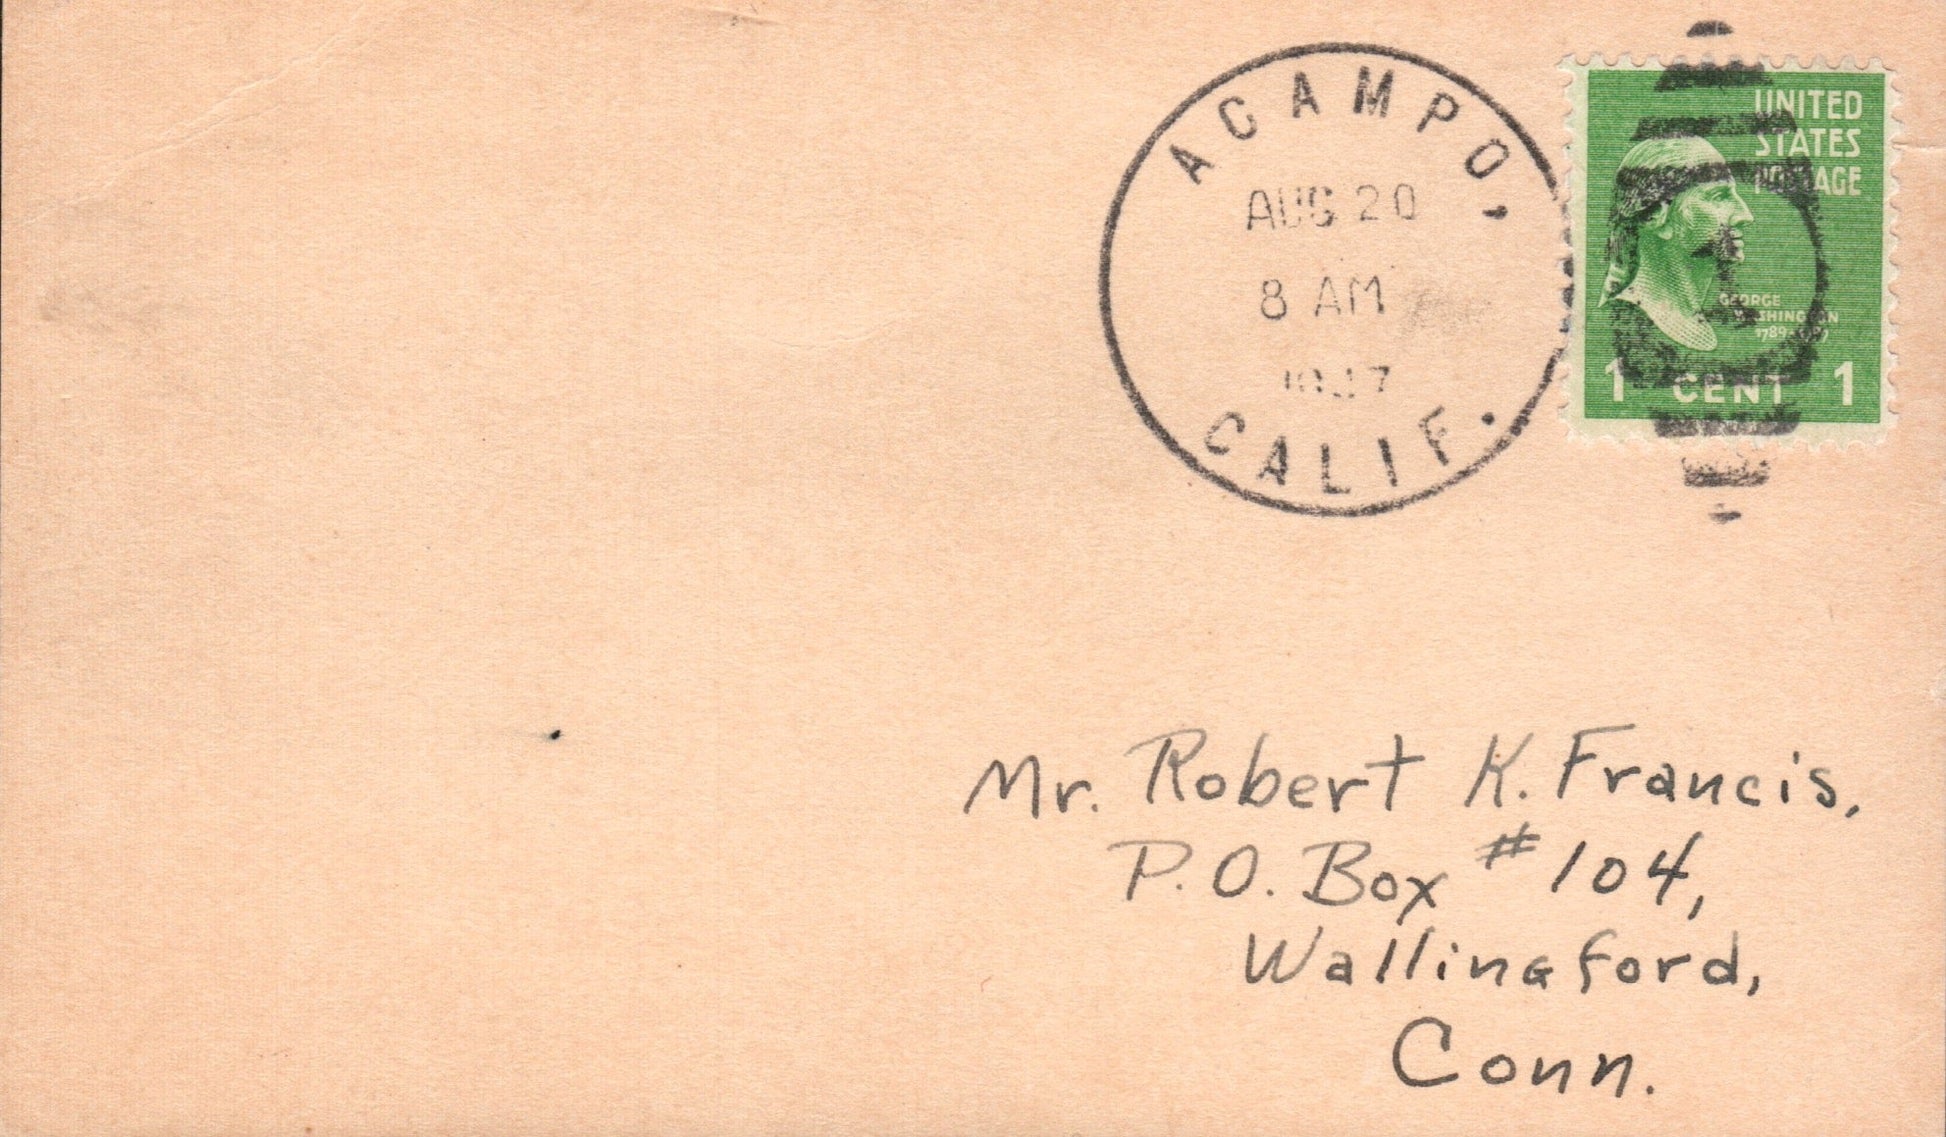 ACAMPO,
AUG 20
8 AM
CALIF.
UNITED
STATES
POSTAGE
GEORGE
WASHINGTON
1
1 CENT 1
Mr. Robert K. Francis,
P.O. Box #104,
Wallingford,
Conn.